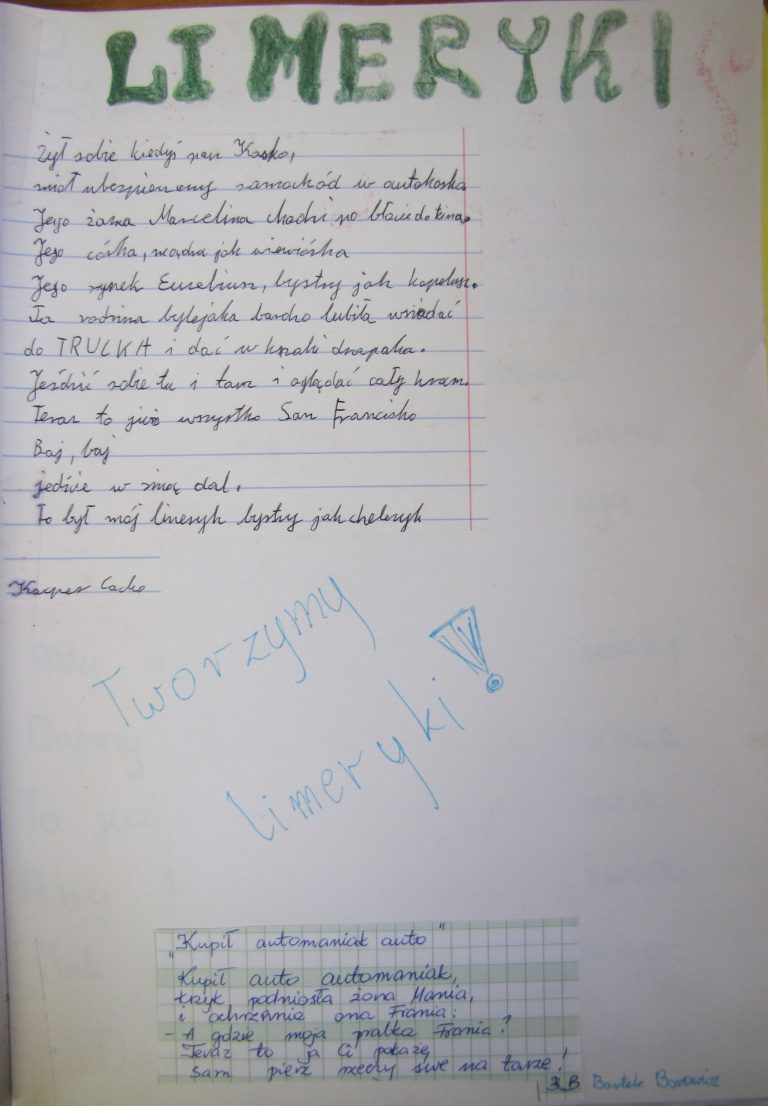 LIMERYKI
Żył sobie kiedyś pan Kasko,
miał ubezpieczony samochód w autokaska
Jego żona Marcelina chodzi po bławie do kina.
Jego córka, mądra jak wiewiórka
Jego synek Euzebiusz, bystry jak kapelusz.
Ta rodzina bylejaka bardzo lubiła wsiadać
do TRUCKA i dać w krzaki drapaka.
Jeździć sobie tu i tam i oglądać cały kram.
Teraz to już wszystko San Francisko
Baj, baj
jedźcie w siną dal.
To był mój limeryk bystry jak choleryk
Kacper
Tworzymy
limeryki!
"Kupił automaniak auto"
Kupił auto automaniak,
krzyk podniosła żona Mania,
i ochrzania ona Frania:
- A gdzie moja pralka Frania?
Teraz to ja Ci pokażę
sam pierz rzeczy swe na tarze!
3B Bartek Borowicz